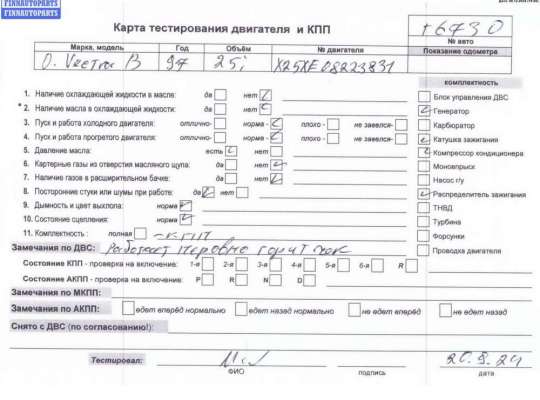 FINNAUTOPARTS
FINNAUTOPARTS
Карта тестирования двигателя и КПП
т6730
№ авто
Марка, модель Год Объём № двигателя Показание одометра
O. Vectra B 97 2.5i X25XE08223831
комплектность
1. Наличие охлаждающей жидкости в масле: да нет
2. Наличие масла в охлаждающей жидкости: да нет
3. Пуск и работа холодного двигателя: отлично- норма- плохо - не завелся-
4. Пуск и работа прогретого двигателя: отлично- норма- плохо - не завелся-
5. Давление масла: есть нет
6. Картерные газы из отверстия масляного щупа: да нет
7. Наличие газов в расширительном бачке: да нет
8. Посторонние стуки или шумы при работе: да нет
9. Дымность и цвет выхлопа: норма
10. Состояние сцепления: норма
11. Комплектность : полная - КПП
Блок управления ДВС
Генератор
Карбюратор
Катушка зажигания
Компрессор кондиционера
Моновпрыск
Насос г/у
Распределитель зажигания
ТНВД
Турбина
Форсунки
Проводка двигателя
Замечания по ДВС: Работает неровно горит чек
Состояние КПП - проверка на включение: 1-я 2-я 3-я 4-я 5-я 6-я R
Состояние АКПП - проверка на включение: P R N D
Замечания по МКПП:
Замечания по АКПП: едет вперёд нормально едет назад нормально не едет вперёд не едет назад
Снято с ДВС (по согласованию!):
Тестировал: 20.9.24
ФИО подпись дата